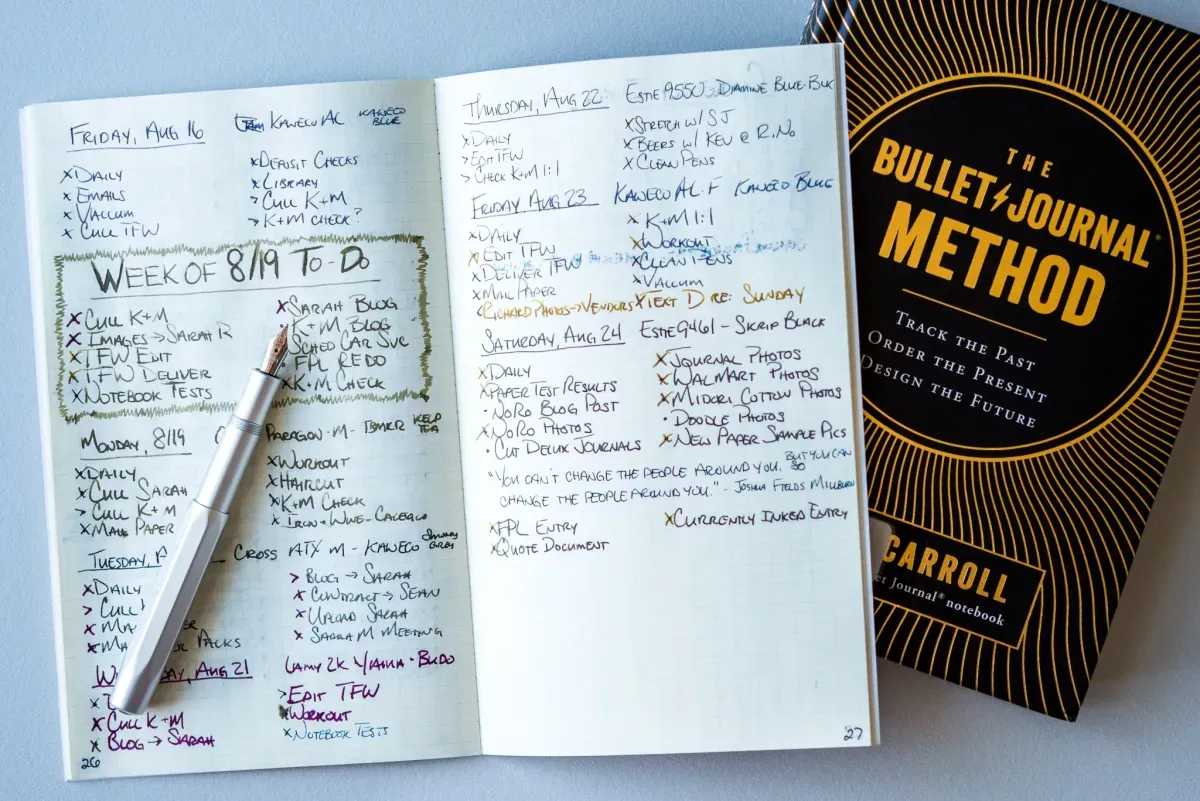 FRIDAY, AUG 16 KAWECO AL KAWECO BLUE
×DAILY
×EMAILS
×VACUUM
×CULL TFW
×DEPOSIT CHECKS
×LIBRARY
>CULL K+M
>K+M CHECK?
WEEK OF 8/19 TO-DO
×CULL K+M
×IMAGES→SARAH R
×TFW EDIT
×TFW DELIVER
×NOTEBOOK TESTS
×SARAH BLOG
K+M BLOG
SCHED CAR SVC
FPL REDO
×K+M CHECK
MONDAY, 8/19 PARAGON-M-
×DAILY
×CULL SARAH
>CULL K+M
×MAIL PAPER
×WORKOUT
×HAIRCUT
×K+M CHECK
×IRON+WINE-CALEXICO
TUESDAY, CROSS ATX M - KAWECO SMOKEY GREY
×DAILY
>CULL
×
× PACKS
>BLOG→SARAH
×CONTRACT→SEAN
×UPLOAD SARAH
×SARAH M MEETING
AUG 21 LAMY 2K
×
×CULL K+M
×BLOG→SARAH
>EDIT TFW
×WORKOUT
×NOTEBOOK TESTS
26
THURSDAY, AUG 22 ESTIE 9550 DIAMINE BLUE-BLK
×DAILY
>EDIT TFW
>CHECK K+M 1:1
×STRETCH W/ SJ
×BEERS W/ KEV @ R.NO
×CLEAN PENS
FRIDAY AUG 23 KAWECO AL-F KAWECO BLUE
×DAILY
×EDIT TFW
×DELIVER TFW
×MAIL PAPER
×K+M 1:1
×WORKOUT
×CLEAN PENS
×VACUUM
RICHARD PHOTOS→VENDORS ×TEXT D RE: SUNDAY
SATURDAY, AUG 24 ESTIE 9461 - SKRIP BLACK
×DAILY
×PAPER TEST RESULTS
·NORO BLOG POST
×NORO PHOTOS
·CUT DELUX JOURNALS
×JOURNAL PHOTOS
×WALMART PHOTOS
×MIDORI COTTON PHOTOS
·DOODLE PHOTOS
×NEW PAPER SAMPLE PICS
"YOU CAN'T CHANGE THE PEOPLE AROUND YOU. BUT YOU CAN
CHANGE THE PEOPLE AROUND YOU." - JOSHUA FIELDS MILLBURN
×FPL ENTRY
×QUOTE DOCUMENT
×CURRENTLY INKED ENTRY
27
THE
BULLET JOURNAL®
METHOD
TRACK THE PAST
ORDER THE PRESENT
DESIGN THE FUTURE
CARROLL
Journal® notebook